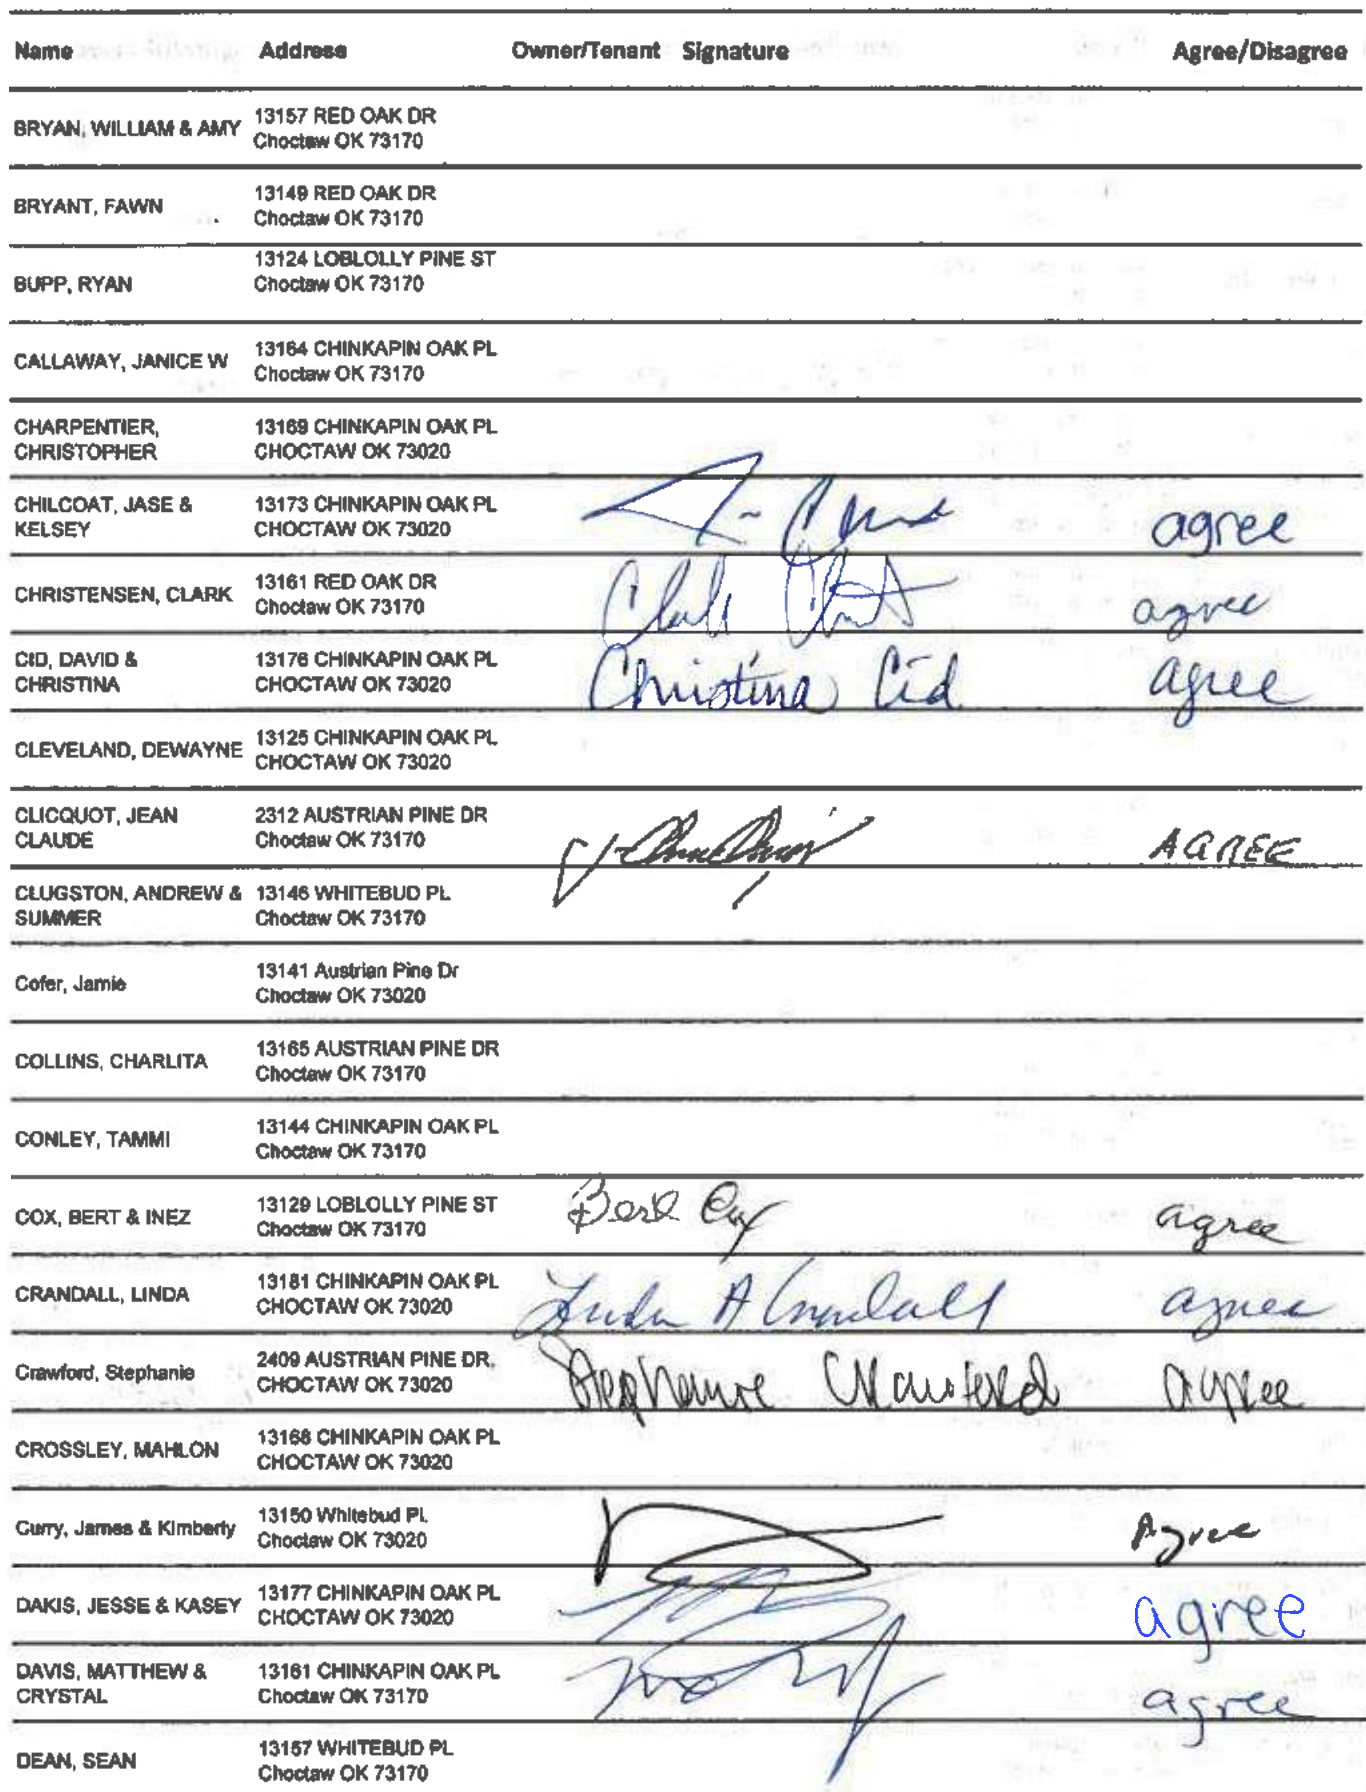 Name Address Owner/Tenant Signature Agree/Disagree
BRYAN, WILLIAM & AMY 13157 RED OAK DR
Choctaw OK 73170
BRYANT, FAWN 13149 RED OAK DR
Choctaw OK 73170
BUPP, RYAN 13124 LOBLOLLY PINE ST
Choctaw OK 73170
CALLAWAY, JANICE W 13164 CHINKAPIN OAK PL
Choctaw OK 73170
CHARPENTIER, 13169 CHINKAPIN OAK PL
CHRISTOPHER CHOCTAW OK 73020
CHILCOAT, JASE & 13173 CHINKAPIN OAK PL
KELSEY CHOCTAW OK 73020 agree
CHRISTENSEN, CLARK 13161 RED OAK DR
Choctaw OK 73170 Clark agree
CID, DAVID & 13176 CHINKAPIN OAK PL
CHRISTINA CHOCTAW OK 73020 Christina Cid agree
CLEVELAND, DEWAYNE 13125 CHINKAPIN OAK PL
CHOCTAW OK 73020
CLICQUOT, JEAN 2312 AUSTRIAN PINE DR
CLAUDE Choctaw OK 73170 AGREE
CLUGSTON, ANDREW & 13146 WHITEBUD PL
SUMMER Choctaw OK 73170
Cofer, Jamie 13141 Austrian Pine Dr
Choctaw OK 73020
COLLINS, CHARLITA 13165 AUSTRIAN PINE DR
Choctaw OK 73170
CONLEY, TAMMI 13144 CHINKAPIN OAK PL
Choctaw OK 73170
COX, BERT & INEZ 13129 LOBLOLLY PINE ST Bert Cox agree
Choctaw OK 73170
CRANDALL, LINDA 13181 CHINKAPIN OAK PL Linda A Crandall agree
CHOCTAW OK 73020
Crawford, Stephanie 2409 AUSTRIAN PINE DR. Stephanie Crawford agree
CHOCTAW OK 73020
CROSSLEY, MAHLON 13168 CHINKAPIN OAK PL
CHOCTAW OK 73020
Curry, James & Kimberly 13150 Whitebud Pl. Agree
Choctaw OK 73020
DAKIS, JESSE & KASEY 13177 CHINKAPIN OAK PL agree
CHOCTAW OK 73020
DAVIS, MATTHEW & 13161 CHINKAPIN OAK PL
CRYSTAL Choctaw OK 73170 agree
DEAN, SEAN 13157 WHITEBUD PL
Choctaw OK 73170